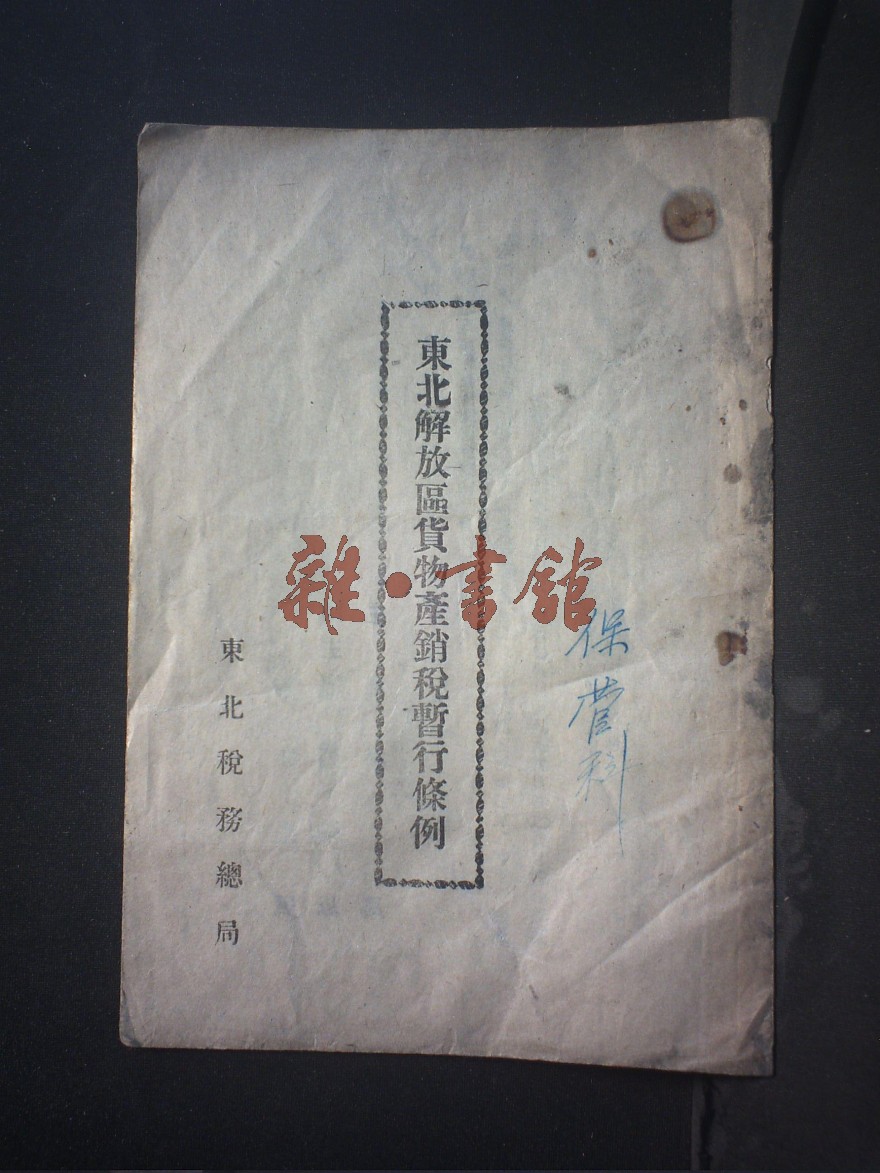 保管科
東北解放區貨物產銷稅暫行條例
東北稅務總局
雜·書館